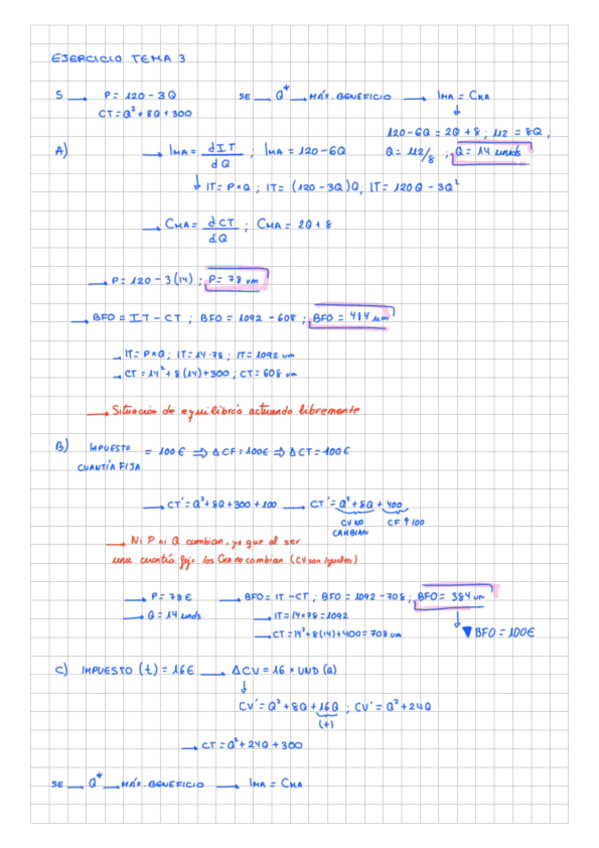 EJERCICIO TEMA 3
S → P = 120 - 3Q SE _ Q* → MÁX. BENEFICIO → IMA = CMA
CT = Q² + 8Q + 300
120 - 6Q = 2Q + 8 ; 112 = 8Q ;
A) → IMA = dIT/dQ ; IMA = 120 - 6Q Q = 112/8 ; Q = 14 unids
↓ IT = P×Q ; IT = (120 - 3Q)Q, IT = 120Q - 3Q²
→ CMA = dCT/dQ ; CMA = 2Q + 8
→ P = 120 - 3(14) ; P = 78 um
→ BFO = IT - CT ; BFO = 1092 - 608 ; BFO = 484 um
→ IT = P×Q ; IT = 14·78 ; IT = 1092 um
→ CT = 14² + 8(14) + 300 ; CT = 608 um
→ Situación de equilibrio actuando libremente
B) IMPUESTO CUANTÍA FIJA = 100€ ⇒ ΔCF = 100€ ⇒ ΔCT = 100€
→ CT' = Q² + 8Q + 300 + 100 → CT' = Q² + 8Q + 400
CV NO CAMBIAN CF ↑ 100
→ Ni P ni Q cambian, ya que al ser
una cuantía fija los CMA no cambian (CV son iguales)
→ P = 78€ → BFO = IT - CT ; BFO = 1092 - 708 ; BFO = 384 um
→ Q = 14 unds → IT = 14×78 = 1092
→ CT = 14² + 8(14) + 400 = 708 um ▼ BFO = 100€
C) IMPUESTO (t) = 16€ → ΔCV = 16 × UND (Q)
↓
CV' = Q² + 8Q + 16Q ; CV' = Q² + 24Q
(t)
→ CT = Q² + 24Q + 300
SE _ Q* → MÁX. BENEFICIO → IMA = CMA